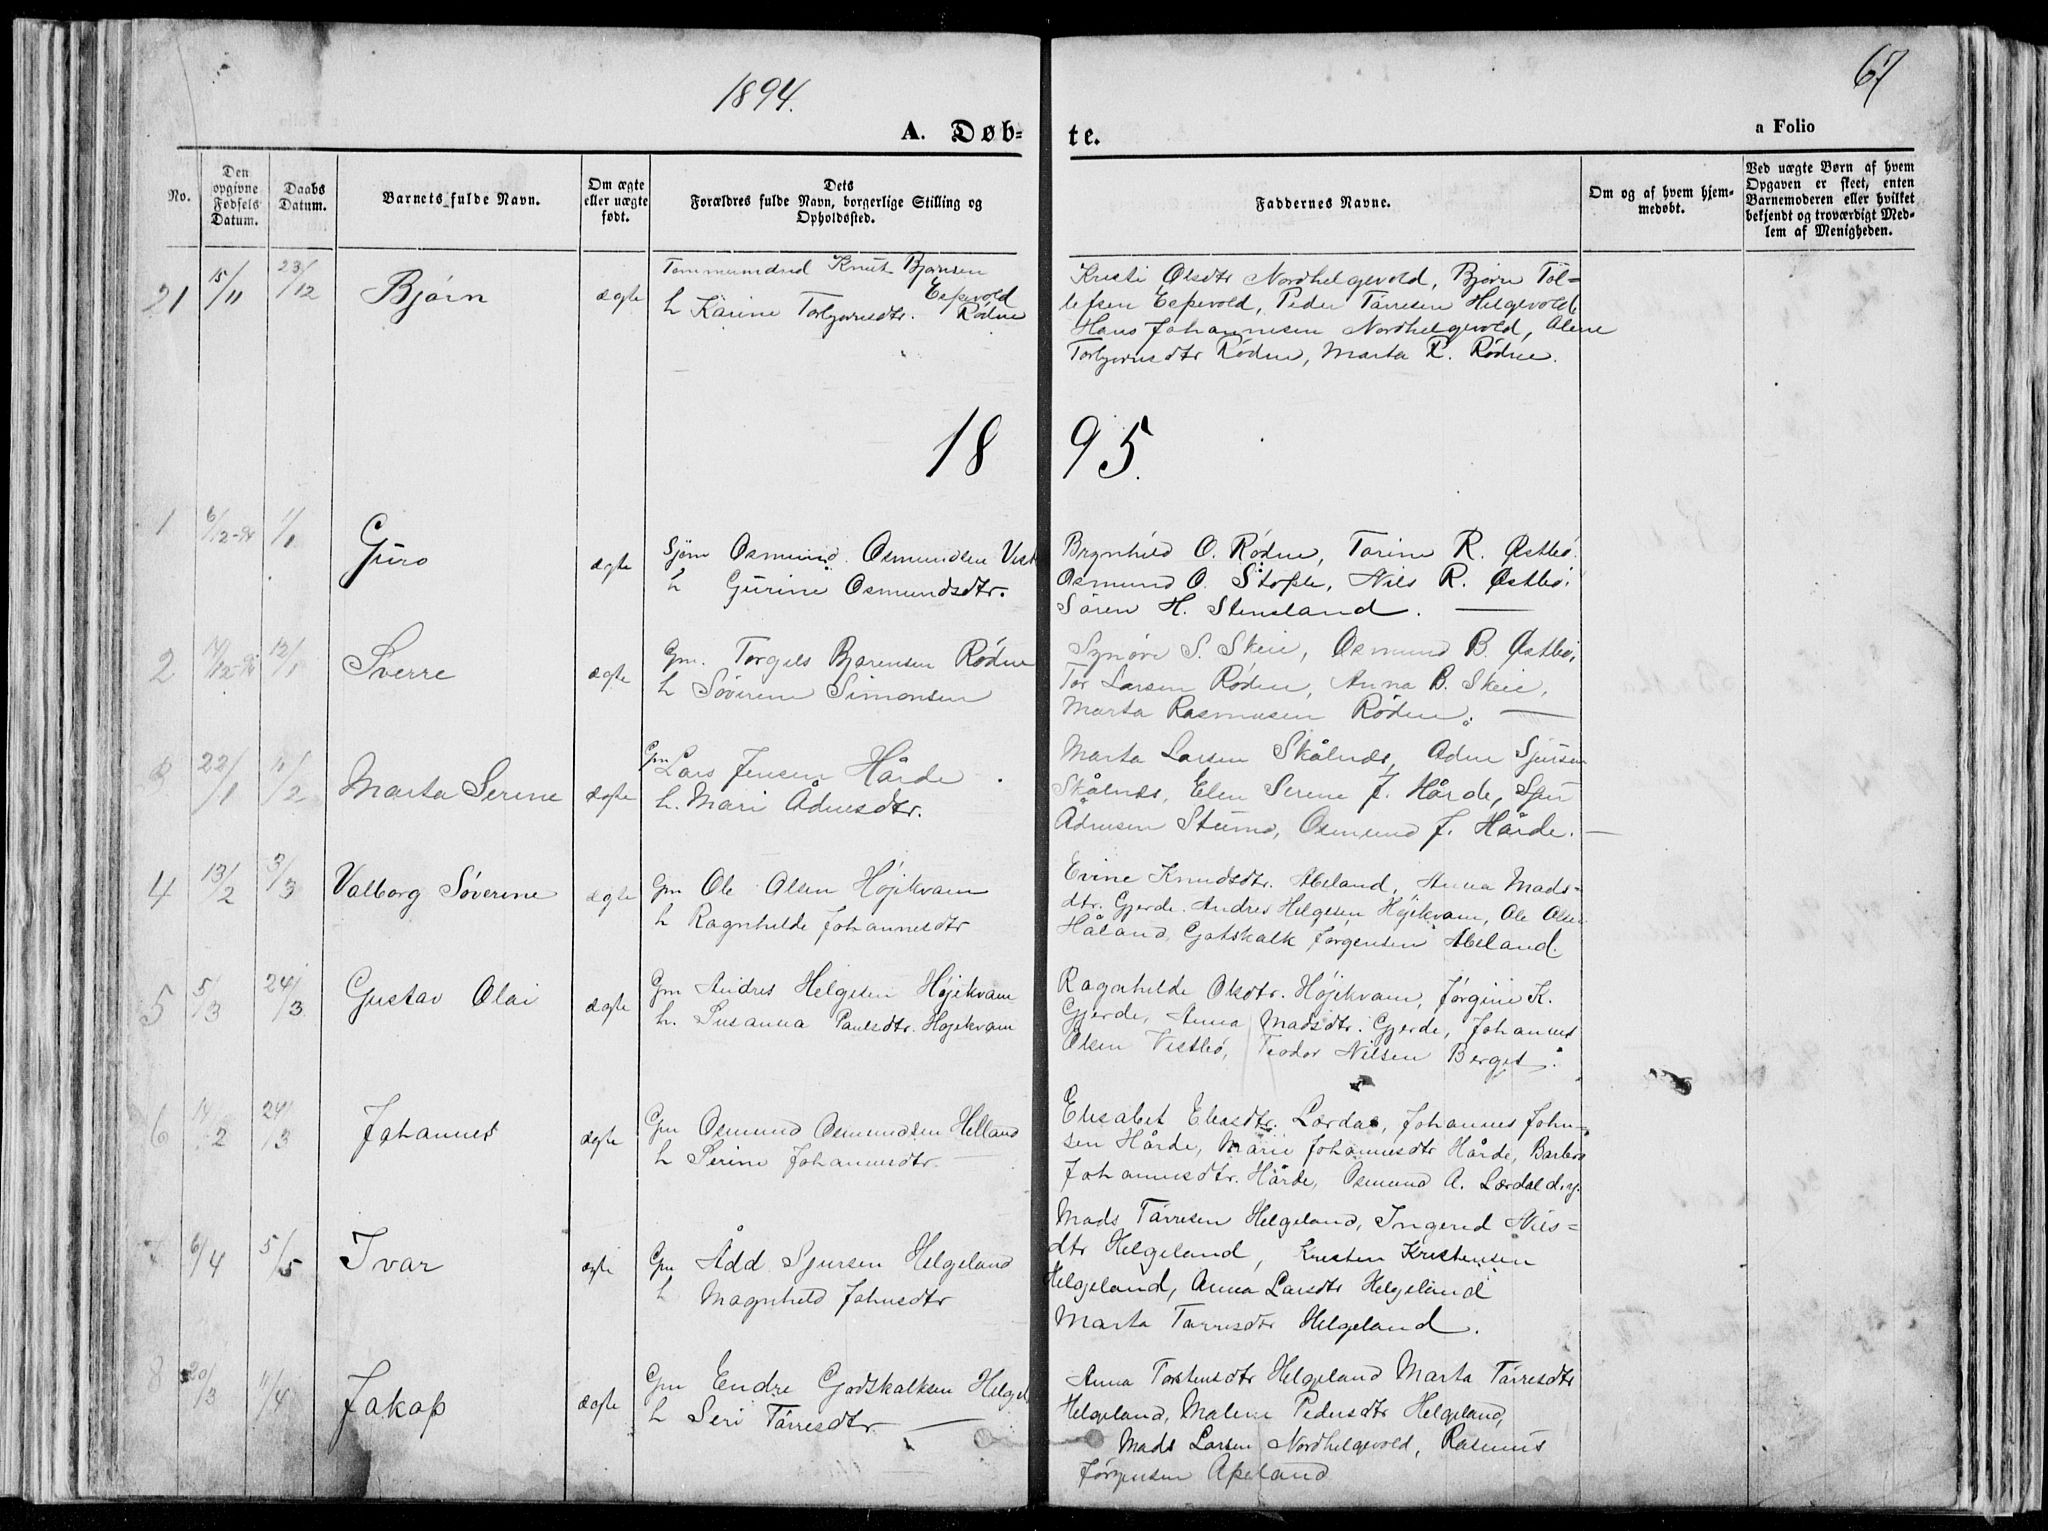 1894.
67
A. Døb-
te.
a Folio
No.
Den opgivne Fødsels Datum.
Daabs Datum.
Barnets fulde Navn.
Om ægte eller uægte født.
Dets Forældres fulde Navn, borgerlige Stilling og Opholdssted.
Faddernes Navne.
Om og af hvem hjemmedøbt.
Ved uægte Børn af hvem Opgaven er skeet, enten Barnemoderen eller hvilket bekjendt og troværdigt Medlem af Menigheden.
21 15/11 23/12 Bjørn ægte Tømmermand Knut Bjørnsen Espevold
h Karine Torbjørnsdtr. Rødne
Kristi Olsdtr Nordhelgevold, Bjørn Tol-
lefsen Espevold, Peder Tørresen Helgevold
Hans Johannesen Nordhelgevold, Alene
Torbjørnsdtr Rødne, Marta R. Rødne.
1895.
1 6/12-94 1/1 Guro ægte Sjøm Osmund Osmundsen Vest
h Gurine Osmundsdtr.
Brynhild O. Rødne, Torine R. Østbø
Osmund O. Stople, Nils R. Østbø,
Søren H. Stensland.
2 14/12-94 12/1 Sverre ægte Gm. Torgils Bjørensen Rødne
h Søverene Simonsen
Synøve S. Skeie, Osmund B. Østbø,
Tor Larsen Rødne, Anna B. Skeie,
Marta Rasmusen Rødne.
3 22/1 11/2 Marta Serine ægte Gm Lars Jensen Hårde
h. Mari Ådnesdtr.
Marta Larsen Skålnes, Adne Sjursen
Skålnes, Elen Serene J. Hårde, Sjur
Ådnesen Stumo, Osmund J. Hårde.
4 13/2 3/3 Valborg Søverine ægte Gm Ole Olsen Højekvam
h Ragnhilde Johannesdtr
Evine Knudsdtr. Abeland, Anna Mads-
dtr. Gjerde. Andres Helgesen Højekvam, Ole Olsen
Håland, Gotskalk Jørgensen Abeland.
5 5/3 24/3 Gustav Olai ægte Gm Andres Helgesen Højekvam
h. Susanna Paulsdtr. Højekvam
Ragnhilde Olsdtr. Højekvam, Jørgine K.
Gjerde, Anna Madsdtr. Gjerde, Johannes
Olsen Vestbø, Teodor Nilsen Berget.
6 14/2 24/3 Johannes ægte Gm Osmund Osmundsen Helland
h Serine Johannesdtr.
Elisabet Eliasdtr. Lærdal, Johannes John-
sen Hårde, Marie Johannesdtr Hårde, Barbro
Johannesdtr. Hårde, Osmund A. Lærdal d.y.
7 6/4 5/5 Ivar ægte Gm Ådd Sjursen Helgeland
h Magnhild Johnsdtr
Mads Tørresen Helgeland, Ingerid Nils-
dtr Helgeland, Kristen Kristensen
Helgeland, Anna Larsdtr Helgeland
Marta Tørresdtr Helgeland.
8 20/3 11/4 Jakop ægte Gm Endre Godskalksen Helgel
h Seri Tørresdtr.
Anna Torstensdtr Helgeland Marta Tørresdtr
Helgeland, Malene Pedersdtr Helgeland,
Mads Larsen Nordhelgevold, Rasmus
Jørgensen Apeland